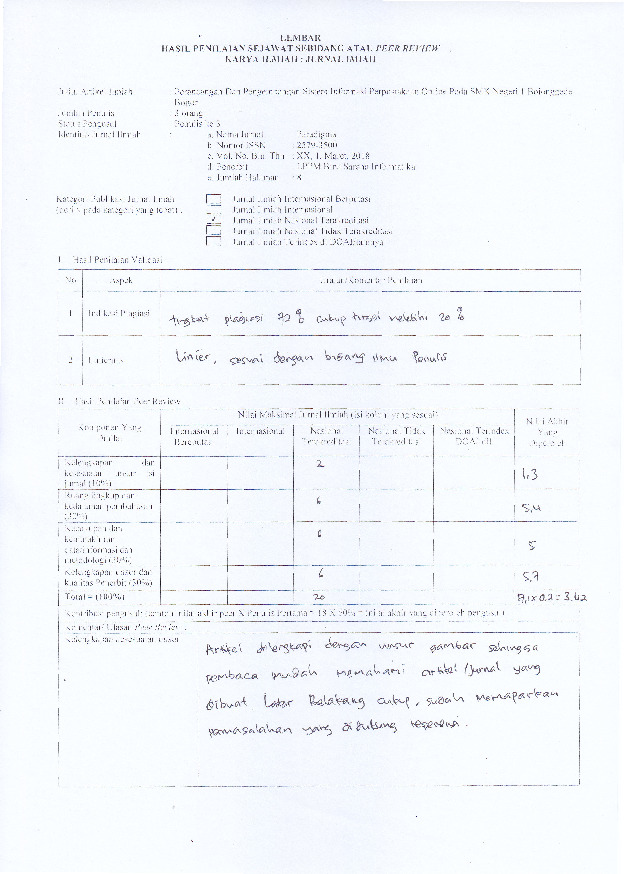 LEMBAR
HASIL PENILAIAN SEJAWAT SEBIDANG ATAU PEER REVIEW
KARYA ILMIAH : JURNAL IMIAH
Judul Artikel Ilmiah : Perancangan Dan Pengembangan Sistem Informasi Perpustakaan Online Pada SMK Negeri 1 Bojonggede
Bogor
Jumlah Penulis 3 orang
Status Pengusul Penulis ke 3
Identitas Jurnal Ilmiah : a. Nama Jurnal : Paradigma
b. Nomor ISSN : 2579-3500
c. Vol. No. Bln. Thn : XX, 1, Maret, 2018
d. Penerbit : LPPM Bina Sarana Informatika
e. Jumlah Halaman : 8
Kategori Publikasi Jurnal Ilmiah Jurnal Ilmiah Internasional Bereputasi
Jurnal Ilmiah Internasional
✓ Jurnal Ilmiah Nasional Terakreditasi
Jurnal Ilmiah Nasional Tidak Terakreditasi
Jurnal Ilmiah Terindex di DOAJ/lainnya
I. Hasil Penilaian Validasi
No Aspek Uraian/Komentar Penilaian
1 Indikasi Plagiasi tingkat plagiasi 72 % cukup tinggi melebihi 20 %
2 Linieritas Linier, sesuai dengan bidang ilmu Penulis
II. Hasil Penilaian Peer Review
Komponen Yang Dinilai Nilai Maksimal Jurnal Ilmiah (isi kolom yang sesuai) Nilai Akhir Yang Diperoleh
Internasional Bereputasi Internasional Nasional Terakreditasi Nasional Tidak Terakreditasi Nasional Terindex DOAJ dll
Kelengkapan dan kesesuaian unsur isi jurnal (10%) 2 1,3
Ruang lingkup dan kedalaman pembahasan (30%) 6 5,4
Kecukupan dan kemutakhiran data/informasi dan metodologi (30%) 6 5
Kelengkapan unsur dan kualitas Penerbit (30%) 6 5,7
Total = (100%) 20 x 0.2 = 3.42
Komentar/Ulasan Peer Review :
Kelengkapan kesesuaian unsur Artikel dilengkapi dengan unsur gambar sehingga
pembaca mudah memahami artikel/Jurnal yang
dibuat Latar Belakang cukup, sudah memaparkan
permasalahan yang didukung